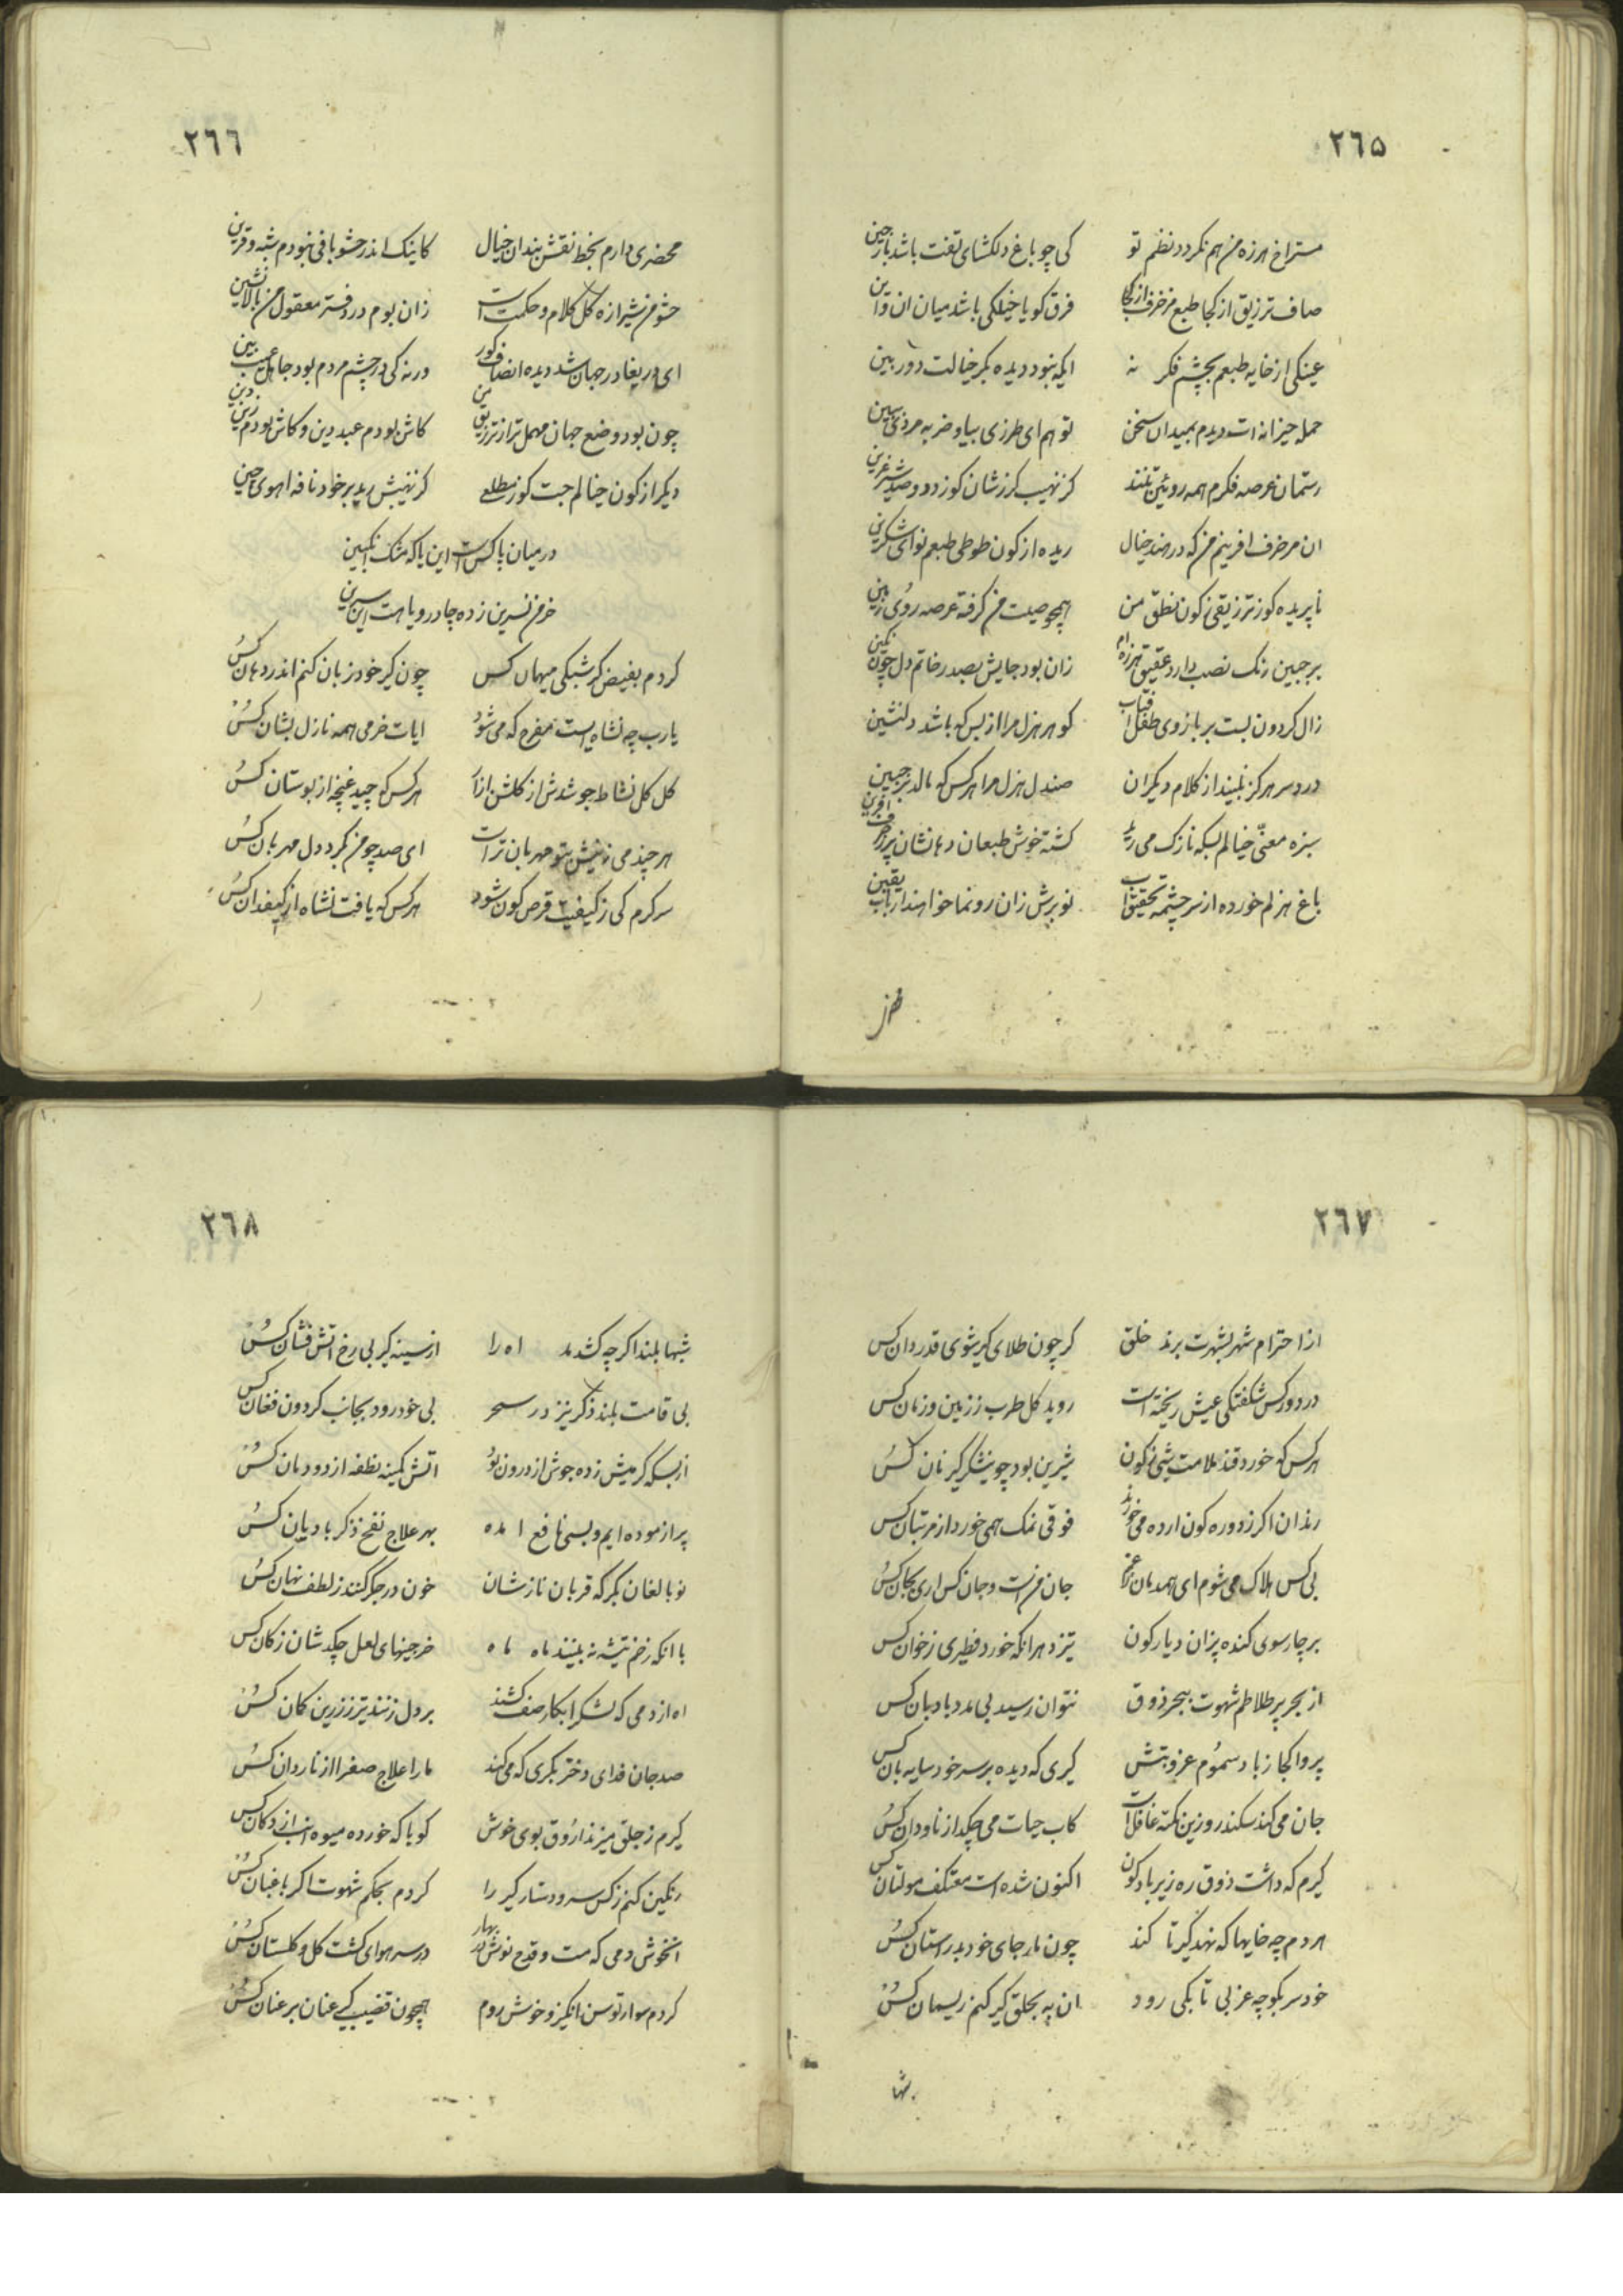 ٢٦٥
مستراخ هرزه من هم نکردد نظم تو کی چو باغ دلکشای تفت باشد بارجین
صاف ترزیق از کجا طبع مزخرف از کجا فرق کویا خیلکی باشد میان ان و این
عینکی از خایه طبعم بچشم فکر نه ایکه نبود دیده بکر خیالت دور بین
حمله حیزانه ات دیدم بمیدان سخن تو هم ای طرزی بیا و ضربه مردی ببین
رستمان عرصه فکرم همه روئین تنند کز نهیب کرزشان کوزد دو صد شیر عرین
ان مزخرف افرینم من که در هند خیال ریده از کون طوطی طبعم نوای شکرین
نا پریده کوز ترزیقی ز کون نطق من همچو صیت من کرفته عرصه روی زمین
بر جبین رنک نصب دارد عقیق هرزه ام زان بود جایش بصدر خاتم دل چون نکین
زال کردون بست بر بازوی طفل افتاب کوهر هزل مرا از بس که باشد دلنشین
درد سر هرکز نبیند از کلام دیکران صندل هزل مرا هر کس که مالد بر جبین
سبزه معنّی خیالم بسکه نازک می رید کشته خوش طبعان دهانشان پر ز حرف افرین
باغ هزلم خورده از سر چشمه تحقیق اب نوبرش زان رونما خواهند ارباب یقین
٢٦٦
محضری دارم بخط نقش بندان خیال کاینک اندر حشو بافی نبودم شبه و قرین
حشو من شیرازه کل کلام و حکمت است زان بوم در دفتر معقول من بالا نشین
ای دریغا در جهان شد دیده انصاف کور ورنه کی در چشم مردم بود جا عیب بین
چون بود وضع جهان مهمل تر از ترزیق من کاش بودم عبد دین و کاش بودم زین دین
دیکر از کون خیالم جست کوز مطلع کز نهیبش رید بر خود نافه اهوی چین
در میان پاکست این یا که مشک انکبین
خرمن نسرین زده چادر و یا هست این سرین
کردم بفیض کرشبکی میهمان کس چون کیر خود زبان کنم اندر دهان کُس
یا رب چه نشاه است مفرح که می شود ایات خرمی همه نازل بشان کُس
کل کل نشاط جوشدش از کلشن ازل هر کس که چید غنچه از بوستان کُس
هر چند می نیش تو مهربان تر است ای صد چو من بکرد دل مهربان کُس
سرکرم کی ز کیفیت قرص کون شود هر کس که یافت نشاه از کیفدان کُس
٢٦٧
از احترام شهر بشهرت برند خلق کر چون طلای کیر شوی قدردان کس
در دور کس شکفتکی عیش ریخته است روید کل طرب ز زمین و زمان کس
هر کس که خورد قند ملامت شی ز کون شیرین بود چو نیشکر کیر نان کُس
رندان اکر ز دوره کون ارده می خورند فوقی نمک همی خورد از مرتبان کس
بی کس هلاک می شوم ای همدمان جان من است و جان کس اری بجان کُس
بر چار سوی کنده پزان دیار کون تیزد هر انکه خورد فطیری ز خوان کس
از بحر پر طلاطم شهوت ببحر ذوق نتوان رسید بی مدد بادبان کس
پروا کجا ز باد سموُم عزوبتش کیری که دیده بر سر خود سایه بان کس
جان می کند سکندر و زین نکته غافل است کاب حیات می چکد از ناودان کُس
کیرم که داشت ذوق ره زیر باد کون اکنون شده است معتکف مولتان کس
هر دم چه خایها که نهد کیر تا کند چون مار جای خود بدر استان کُس
خود سر بکوچه عزبی تا بکی رود ان به بحلق کیر کنم ریسمان کُس
٢٦٨
شبها بلند اکر چه کشد مد اه را از سینه کیر بی رخ اتش فشان کُس
بی قامت بلند ذکر نیز در سحر بی خود رود بجانب کردون فغان کس
از بسکه کرمیش زده جوش از درون نو اتش کمینه نطفه از دودمان کُس
پر ازموده ایم و بسی نافع امده بهر علاج نفخ ذکر بادیان کُس
نو بالغان بکر که قربان نازشان خون در جکر کنند ز لطف نهان کُس
با انکه زخم تیشه نه بینند ماه ماه خرجینهای لعل چکد شان ز کان کس
اه از دمی که لشکر ابکار صف کشند بر دل زنند تیر ز زرین کمان کُس
صد جان فدای دختر بکری که می کند ما را علاج صفرا از ناردان کُس
کیرم ز جلق میزند ارُوق بوی خوش کویا که خورده میوه انب از دکان کس
رنکین کنم ز کس سر و دستار کیر را کردم بحکم شهوت اکر باغبان کُس
انخوش دمی که مست و قدح نوش در بهار در سر هوای کشت کل و کلستان کُس
کردم سوار توسن انکیز و خوش روم همچون قضیب کیر عنان بر عنان کُس